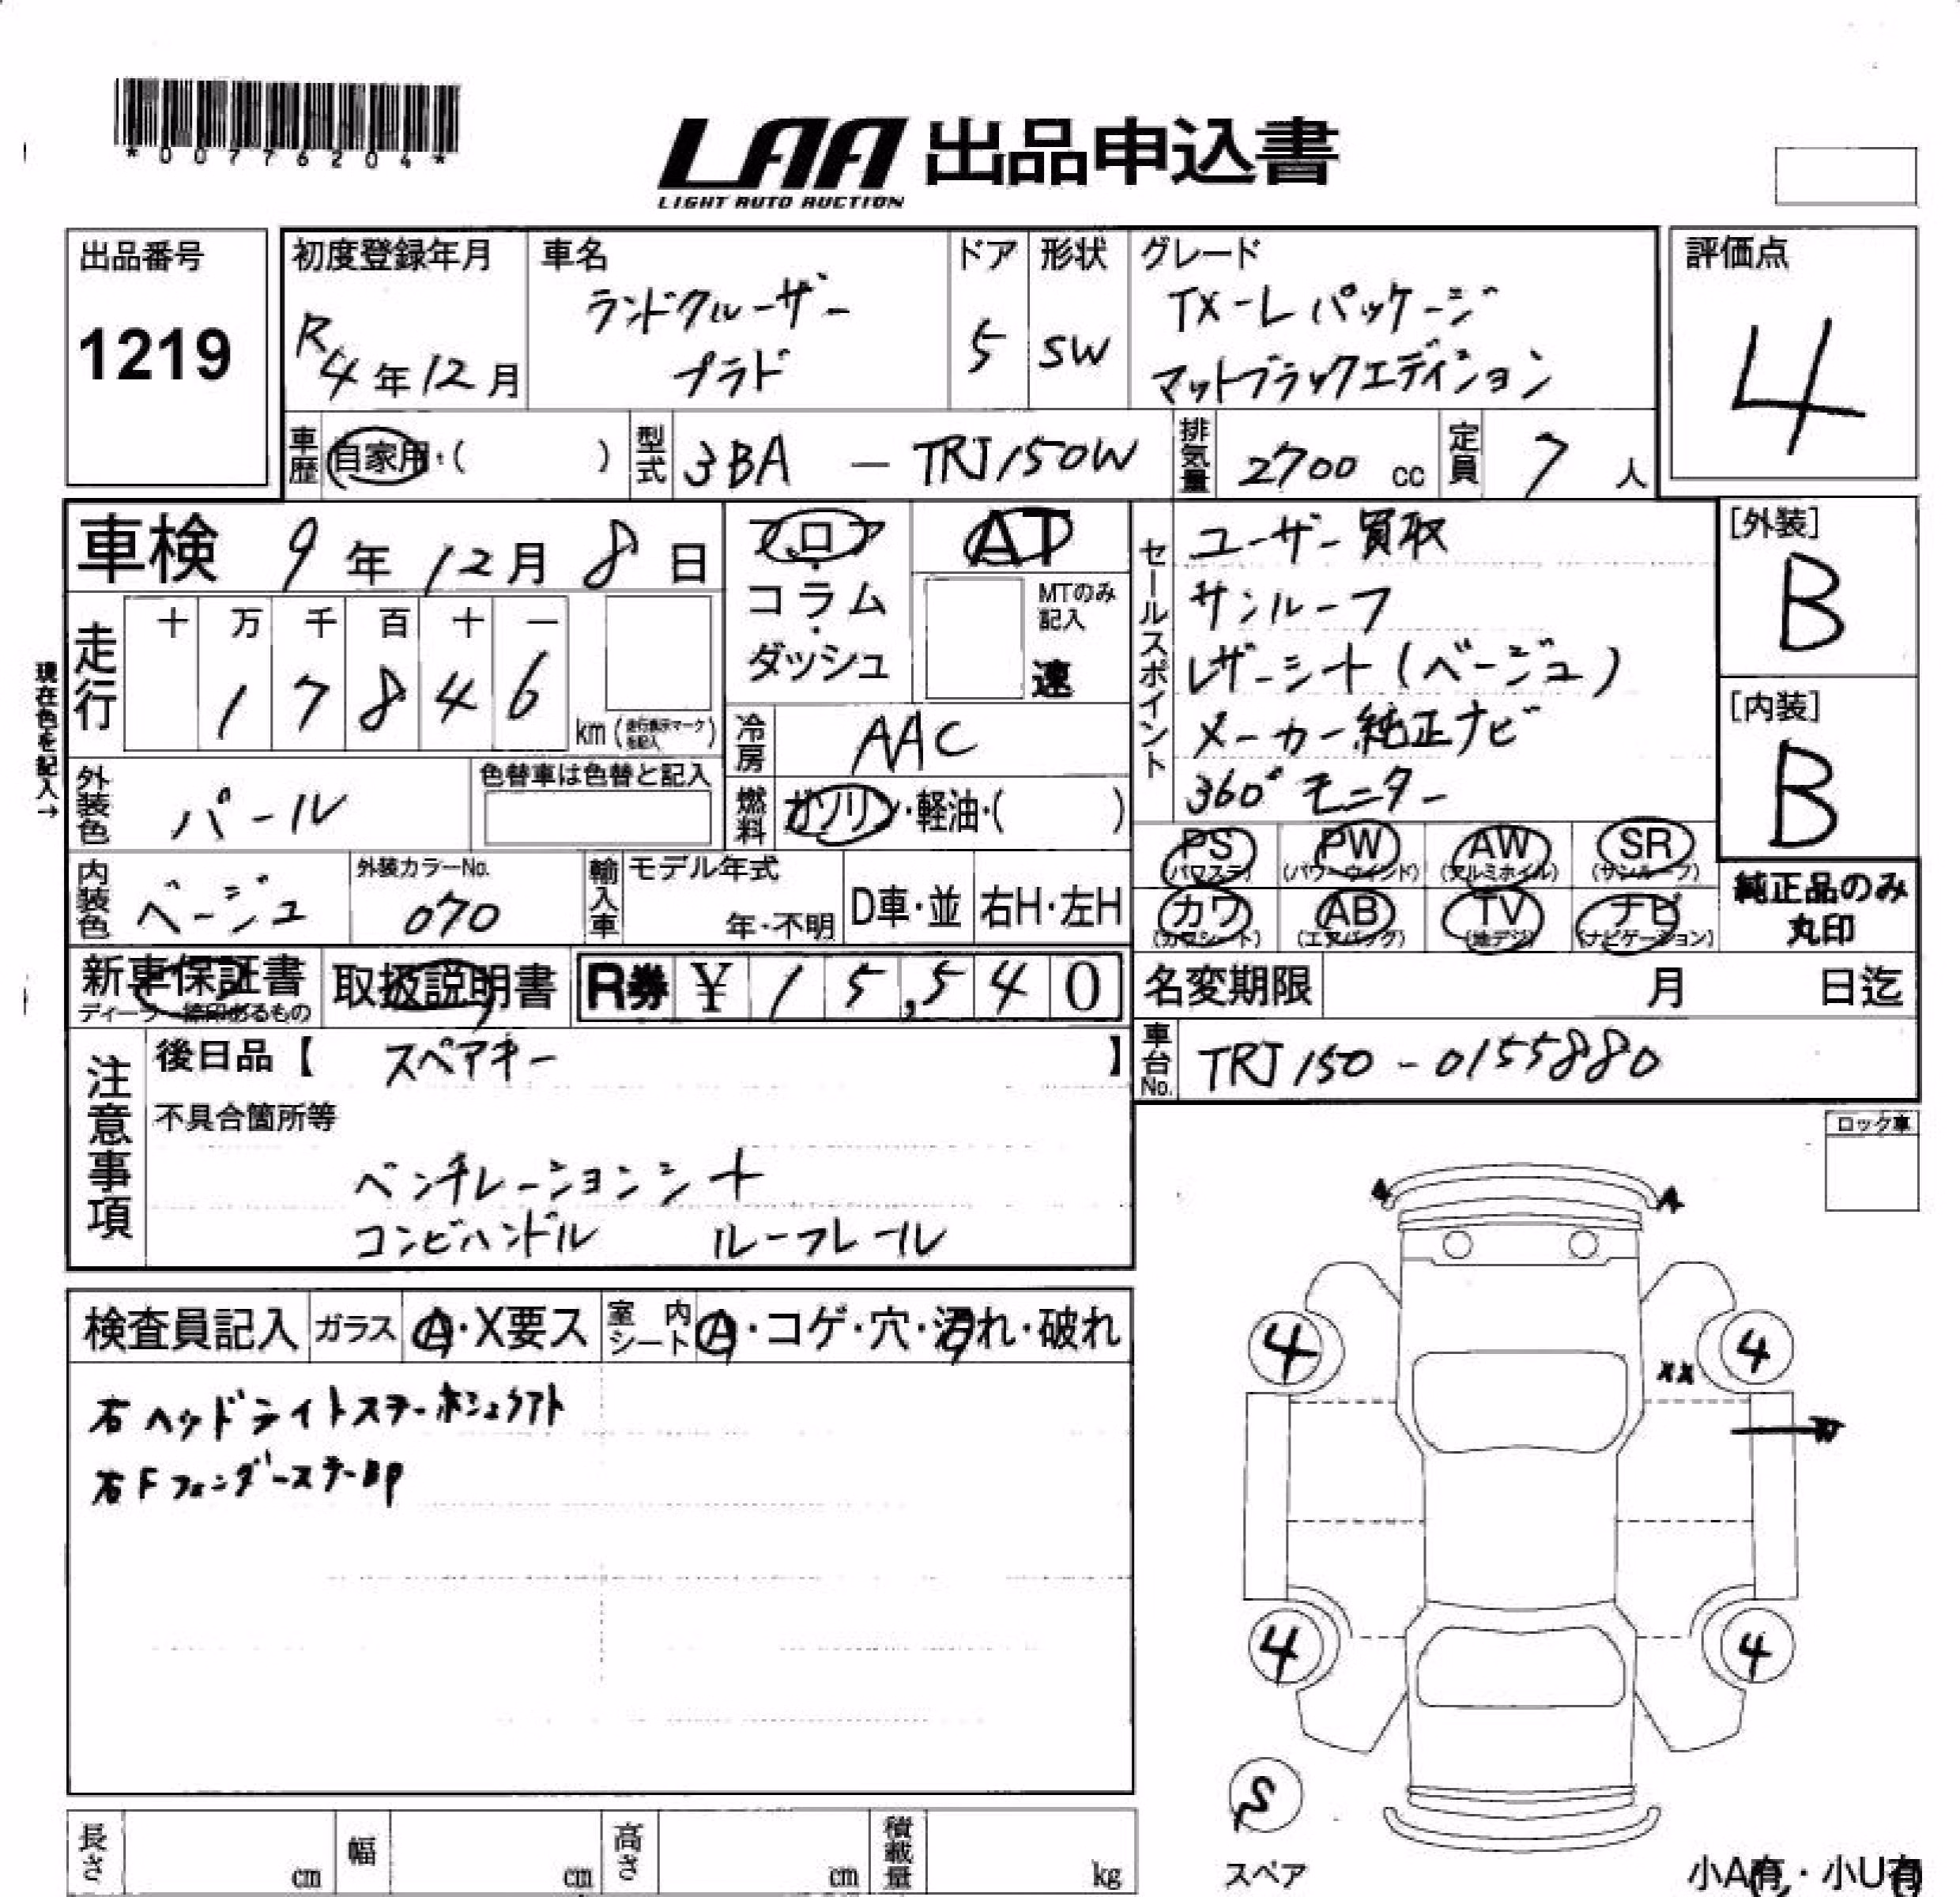 *00776204*
LAA 出品申込書
LIGHT AUTO AUCTION
出品番号
1219
初度登録年月
R4年12月
車名
ランドクルーザー
プラド
ドア
5
形状
SW
グレード
TX-Lパッケージ
マットブラックエディション
評価点
4
車歴 自家用・( )
型式 3BA - TRJ150W
排気量 2700 cc
定員 7 人
車検 9年12月8日
フロア・コラム・ダッシュ
AT
MTのみ記入
速
セールスポイント
ユーザー買取
サンルーフ
レザーシート(ベージュ)
メーカー純正ナビ
360°モニター
[外装]
B
[内装]
B
現在色を記入→
走行
十 万 千 百 十 一
1 7 8 4 6
km(走行表示マークを記入)
冷房 AAC
燃料 ガソリン・軽油・( )
外装色 パール
色替車は色替と記入
内装色 ベージュ
外装カラーNo.
070
輸入車
モデル年式
年・不明
D車・並
右H・左H
PS (パワステ)
PW (パワーウインド)
AW (アルミホイル)
SR (サンルーフ)
カワ (カワシート)
AB (エアバック)
TV (地デジ)
ナビ (ナビゲーション)
純正品のみ
丸印
新車保証書
取扱説明書
R券 ¥ 15,540
名変期限 月 日迄
車台No. TRJ150-0155880
注意事項
後日品【 スペアキー 】
不具合箇所等
ベンチレーションシート
コンビハンドル ルーフレール
ロック車
検査員記入
ガラス A・X要ス
室内シート A・コゲ・穴・汚れ・破れ
右ヘッドライトステー
右Fフェンダーステー
A A
4 4
XX
W
4 4
S
スペア
長さ cm
幅 cm
高さ cm
積載量 kg
小A有・小U有